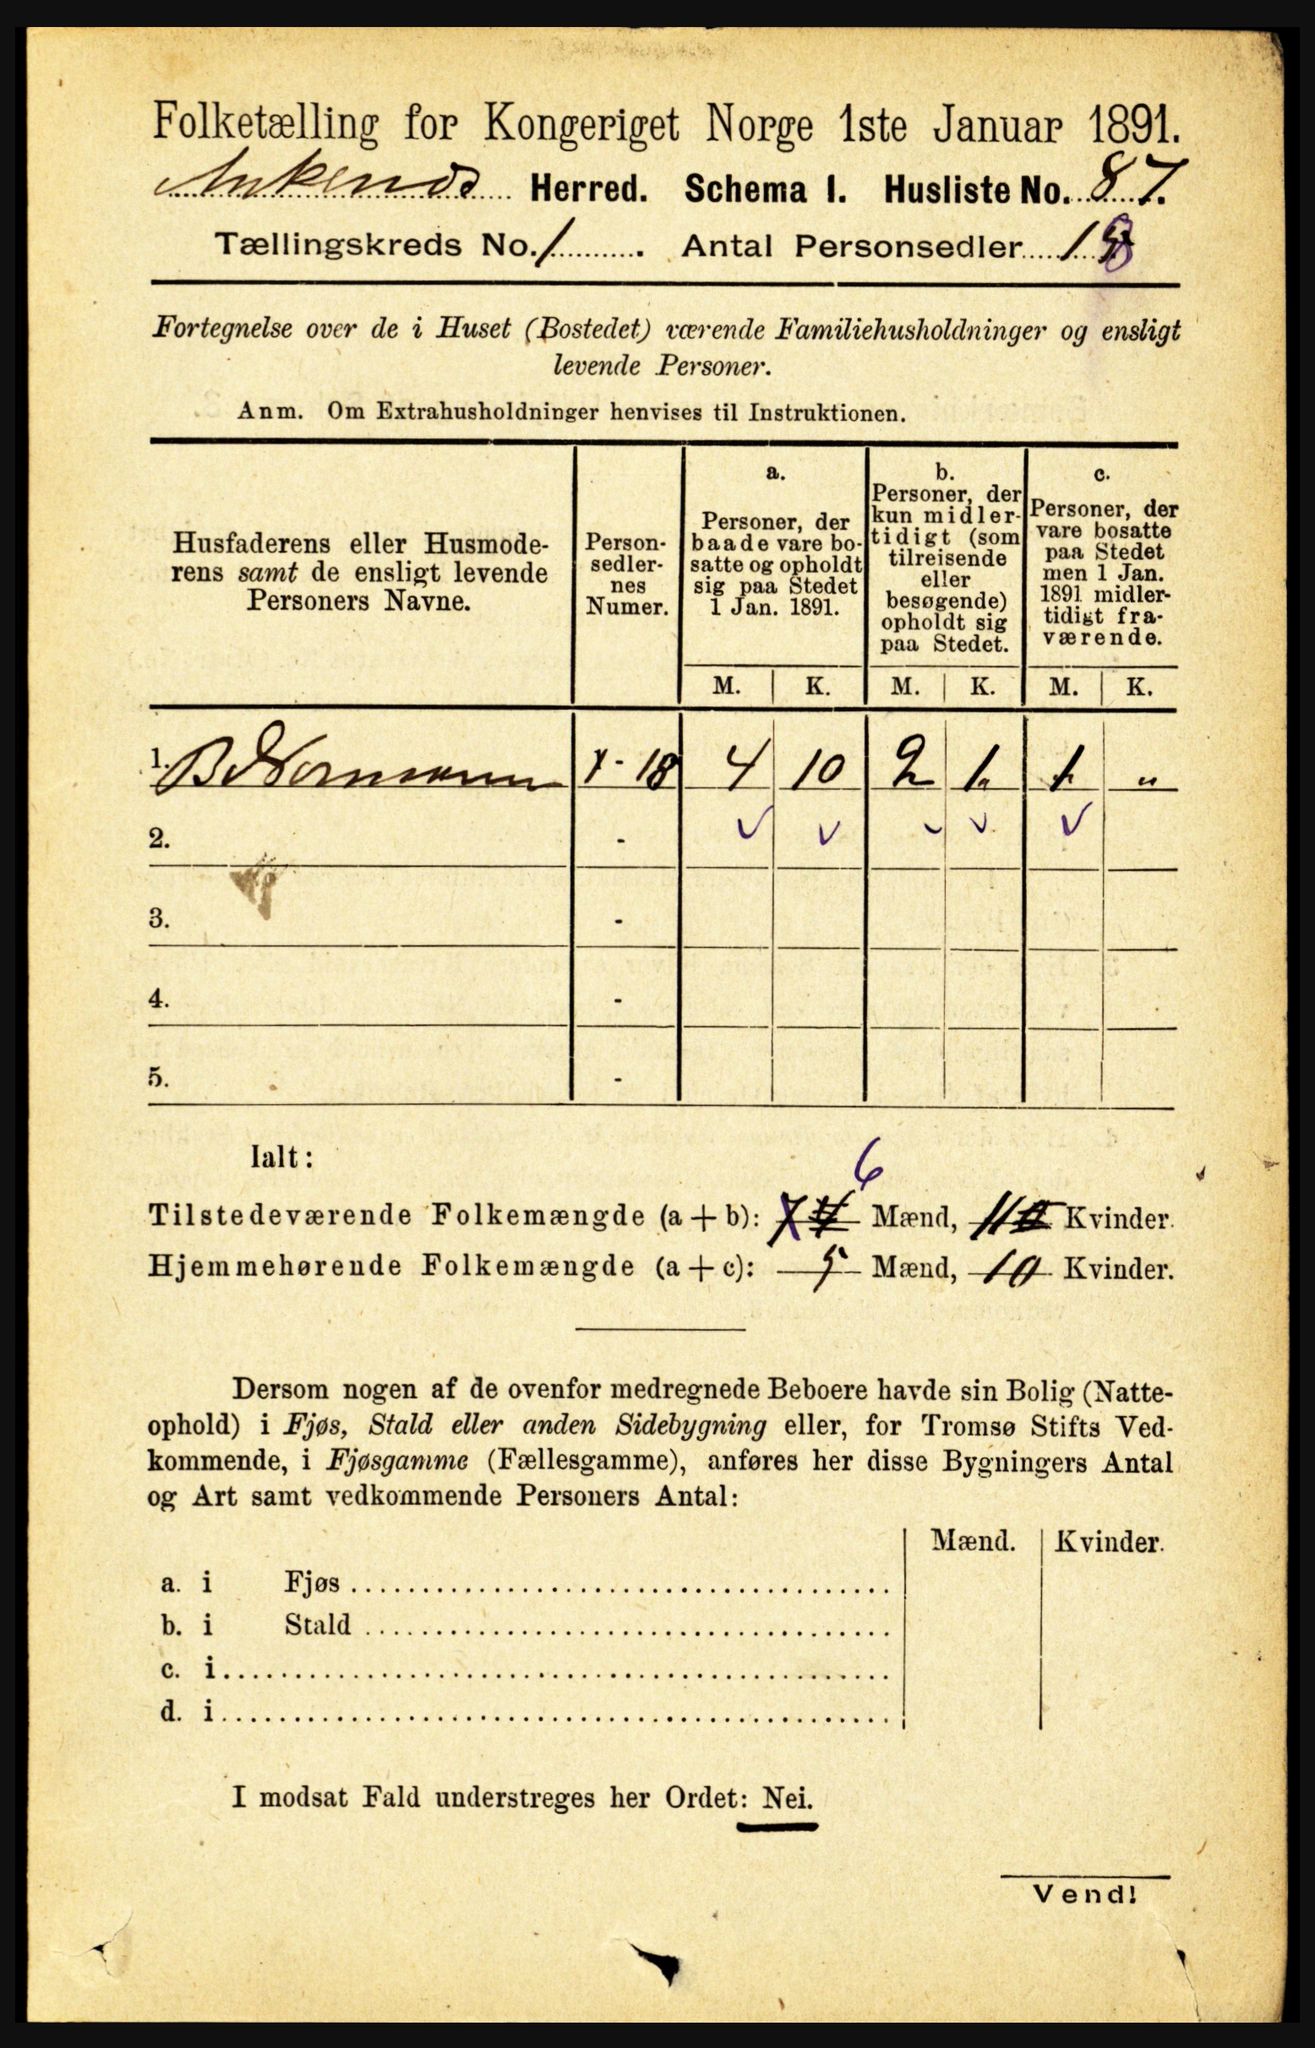 Folketælling for Kongeriget Norge 1ste Januar 1891.
Ankenes Herred. Schema I. Husliste No. 87.
Tællingskreds No. 1. Antal Personsedler 18
Fortegnelse over de i Huset (Bostedet) værende Familiehusholdninger og ensligt
levende Personer.
Anm. Om Extrahusholdninger henvises til Instruktionen.
Husfaderens eller Husmode-
rens samt de ensligt levende
Personers Navne.
Person-
sedler-
nes
Numer.
a.
Personer, der
baade vare bo-
satte og opholdt
sig paa Stedet
1 Jan. 1891.
b.
Personer, der
kun midler-
tidigt (som
tilreisende
eller
besøgende)
opholdt sig
paa Stedet.
c.
Personer, der
vare bosatte
paa Stedet
men 1 Jan.
1891 midler-
tidigt fra-
værende.
M. K. M. K. M. K.
1. Normann 1 - 18 4 10 2 1 1 „
2. -
3. -
4. -
5. -
Ialt:
6
Tilstedeværende Folkemængde (a + b): Mænd, 11 Kvinder.
Hjemmehørende Folkemængde (a + c): 5 Mænd, 10 Kvinder.
Dersom nogen af de ovenfor medregnede Beboere havde sin Bolig (Natte-
ophold) i Fjøs, Stald eller anden Sidebygning eller, for Tromsø Stifts Ved-
kommende, i Fjøsgamme (Fællesgamme), anføres her disse Bygningers Antal
og Art samt vedkommende Personers Antal:
Mænd. Kvinder.
a. i Fjøs
b. i Stald
c. i
d. i
I modsat Fald understreges her Ordet: Nei.
Vend!